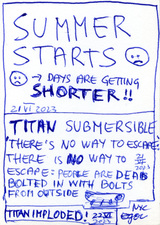 SUMMER
STARTS
→ DAYS ARE GETTING
SHORTER!!
21 VI 2023
TITAN SUBMERSIBLE
THERE'S NO WAY TO ESCAPE
THERE IS NO WAY TO
ESCAPE: PEOPLE ARE DEAD
BOLTED IN WITH BOLTS
FROM OUTSIDE
TITAN IMPLODED! 22 VI
2023
NYC